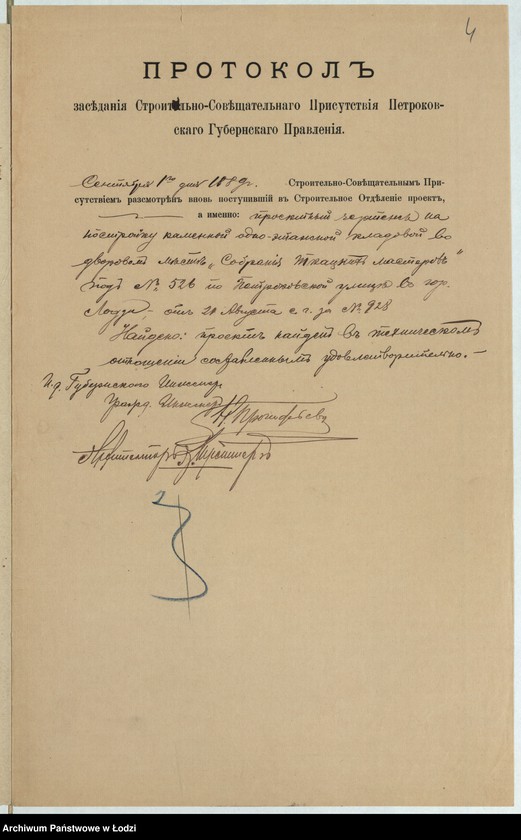 4
ПРОТОКОЛЪ
засѣданія Строительно-Совѣщательнаго Присутствія Петроков-
скаго Губернскаго Правленія.
Сентября 1го дня 1889г. Строительно-Совѣщательнымъ При-
сутствіемъ разсмотрѣнъ вновь поступившій въ Строительное Отдѣленіе проектъ,
а именно: проектный чертежъ на
постройку каменной одно-этажной кладовой во
дворовомъ мѣстѣ „Собранія Ткацкихъ мастеровъ“
подъ № 526 по Петроковской улицѣ въ гор.
Лодзи, отъ 20 Августа с. г. за № 928
Найдено: проектъ найденъ въ техническомъ
отношеніи составленнымъ удовлетворительно. —
И. д. Губернскаго Инженера
Инженеръ
Архитекторъ